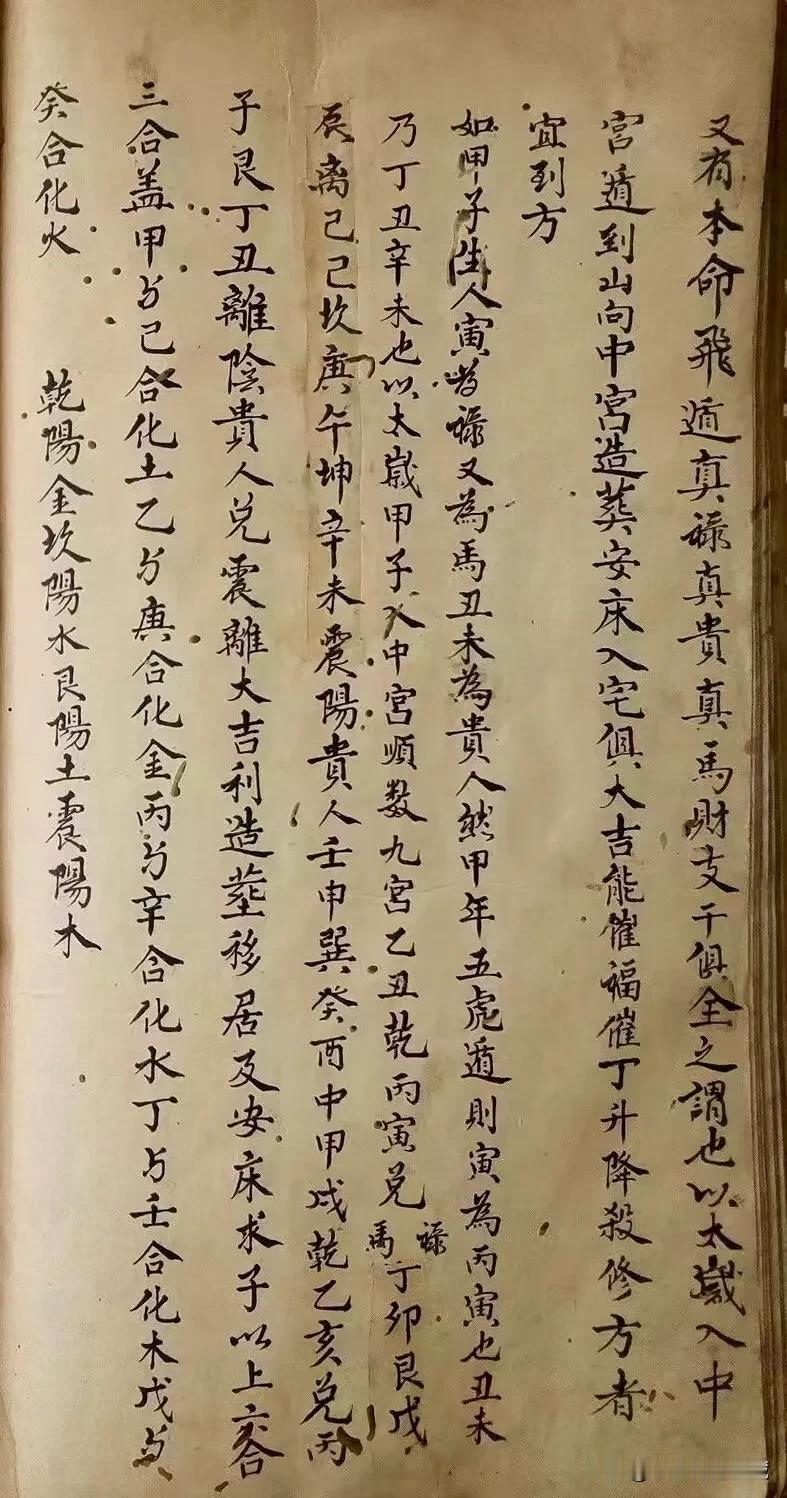 又有本命飛遁真禄真貴真馬財支干俱全之謂也以太歲入中
宮遁到山向中宮造葬安床入宅俱大吉能催福催丁升降殺修方者
宜到方
如甲子生人寅為禄又為馬丑未為貴人然甲年五虎遁則寅為丙寅也丑未
乃丁丑辛未也以太歲甲子入中宮順数九宮乙丑乾丙寅兑禄馬丁卯艮戊
辰离己巳坎庚午坤辛未震陽貴人壬申巽癸酉中甲戌乾乙亥兑丙
子艮丁丑離陰貴人兑震離大吉利造塟移居及安床求子以上六合
三合盖甲与己合化土乙与庚合化金丙与辛合化水丁与壬合化木戊与
癸合化火 乾陽金坎陽水艮陽土震陽木